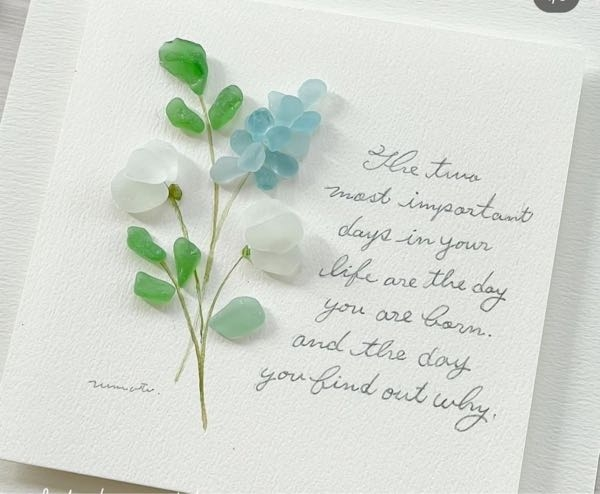 The two
most important
days in your
life are the day
you are born.
and the day
you find out why.